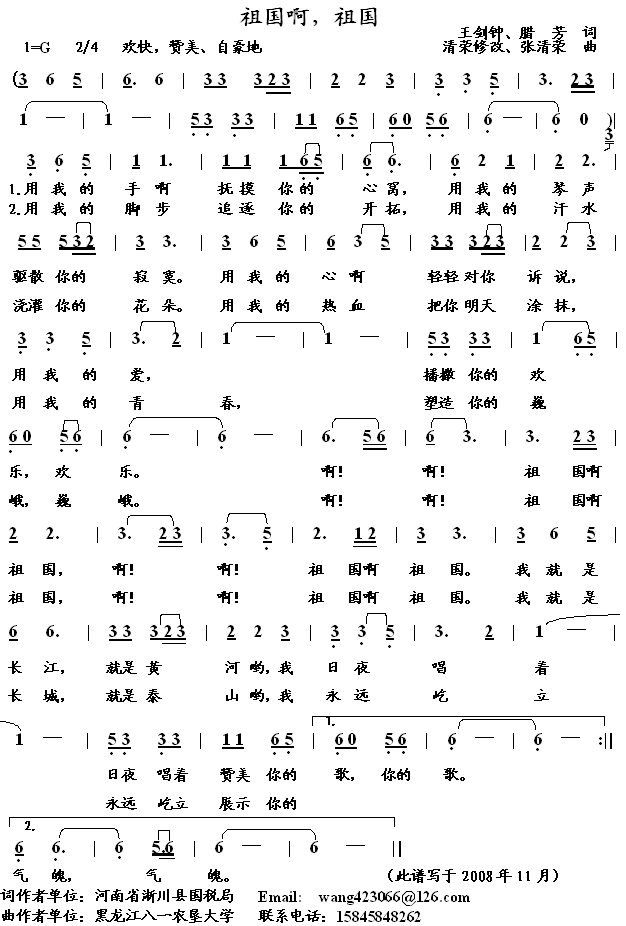 祖国啊，祖国
王剑钟、腊 芳 词
1=G 2/4 欢快，赞美、自豪地 清荣修改、张清荣 曲
(3 6 5 | 6. 6 | 33 323 | 2 2 | 3 3 5 | 3. 23 |
1 — | 1 — | 53 33 | 11 65 | 60 56 | 6 — | 6 0 )| 3
3 6 5 | 1 1. | 11 1165 | 6 6. | 6 2 1 | 2 2. |
1.用 我 的 手 啊 抚摸 你的 心 窝， 用 我 的 琴 声
2.用 我 的 脚 步 追逐 你的 开 拓， 用 我 的 汗 水
55 532 | 3 3. | 3 6 5 | 6 3 5 | 33 323 | 2 2 3 |
驱散 你的 寂 寞。 用 我 的 心 啊 轻轻 对你 诉 说，
浇灌 你的 花 朵。 用 我 的 热 血 把你 明天 涂 抹，
3 3 5 | 3. 2 | 1 — | 1 — | 53 33 | 1 65 |
用 我 的 爱， 播撒 你的 欢
用 我 的 青 春， 塑造 你的 巍
60 56 | 6 — | 6 — | 6. 56 | 6 3. | 3. 23 |
乐， 欢 乐。 啊！ 啊！ 祖 国啊
峨， 巍 峨。 啊！ 啊！ 祖 国啊
2 2. | 3. 23 | 3. 5 | 2. 12 | 3 3. | 3 6 5 |
祖 国， 啊！ 啊！ 祖 国啊 祖 国。 我 就 是
祖 国， 啊！ 啊！ 祖 国啊 祖 国。 我 就 是
6 6. | 33 323 | 2 2 3 | 3 3 5 | 3. 2 | 1 —
长 江， 就是 黄 河 哟，我 日 夜 唱 着
长 城， 就是 泰 山 哟，我 永 远 屹 立
1 — | 53 33 | 11 65 | 1. 60 56 | 6 — | 6 — :||
日夜 唱着 赞美 你的 歌，你的 歌。
永远 屹立 展示 你的
2.
6 6. | 6 5.6 | 6 — | 6 — ||
气 魄， 气 魄。 （此谱写于 2008 年 11 月）
词作者单位：河南省淅川县国税局 Email: wang423066@126.com
曲作者单位：黑龙江八一农垦大学 联系电话：15845848262